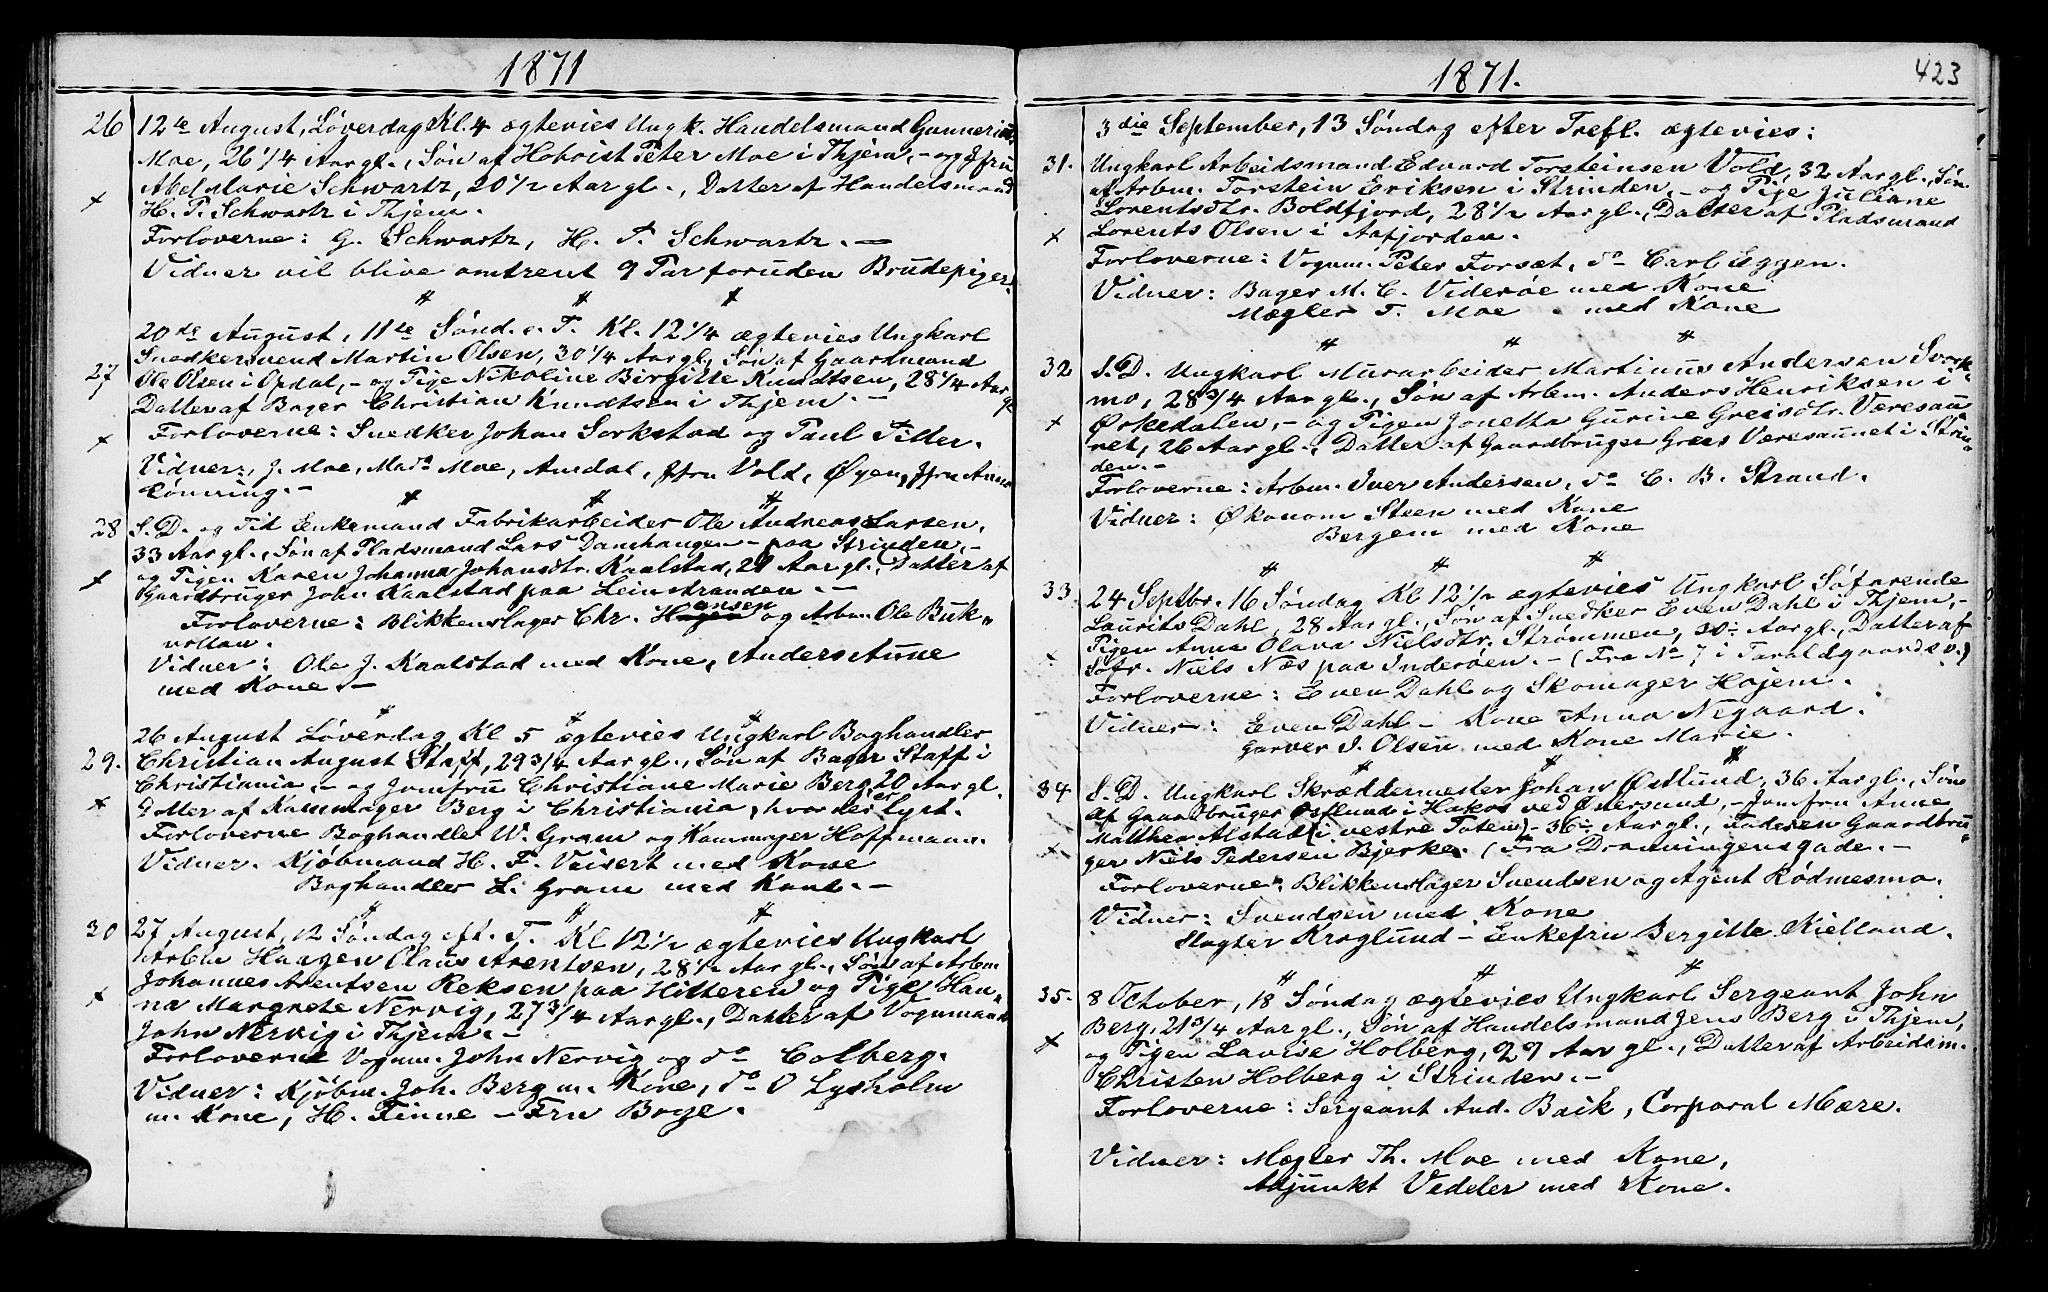 1871
26 12te August, Löverdag Kl. 4 ægtevies Ungk. Handelsmand Gunnerius
Moe, 26 1/4 Aar gl., Søn af Hofvist Peter Moe i Thjem, - og Jfru
Abel Marie Schwartz, 20 1/2 Aar gl., Datter af Handelsmand
H. P. Schwartz i Thjem.
Forloverne: G. Schwartz, H. P. Schwartz. —
Vidner vil blive omtrent 9 Par foruden Brudepiger.
20de August, 11te Sønd. e. T. Kl. 12 1/4 ægtevies Ungkarl
Snedkersvend Martin Olsen, 30 1/4 Aar gl., Søn af Gaardmand
27 Ole Olsen i Opdal, - og Pige Nikoline Birgitte Knudtsen, 28 1/4 Aar gl
Datter af Bager Christian Knudtsen i Thjem. —
Forloverne: Snedker Johan Sorkstad og Paul Tiller.
Vidner: J. Moe, Mad. Moe, Amdal, Jfru Vold, Øyen, Jfru Anna
Lönning. —
28 S. D. og Tid Enkemand Fabrikarbeider Ole Andreas Larsen,
33 Aar gl., Søn af Pladsmand Lars Damhaugen - paa Strinden, -
og Pigen Karen Johanna Johansdtr. Kaalstad, 29 Aar gl., Datter af
Gaardbruger John Kaalstad paa Leinstranden. —
Forloverne: Blikkenslager Chr. Hansen og Arbm. Ole Buk-
vollan.
Vidner: Ole J. Kaalstad med Kone, Anders Aune
med Kone. —
26 August Löverdag Kl 5 ægtevies Ungkarl Boghandler
29. Christian August Staff, 29 3/4 Aar gl., Søn af Bager Staff i
Christiania - og Jomfru Christiane Marie Berg, 20 Aar gl.
Datter af Kammager Berg i Christiania, hvor der er Lyst.
Forloverne Boghandler W. Gram og Kammager Hoffmann.
Vidner. Kjøbmand H. F. Veisert med Kone
Boghandler L. Gram med Kone. —
30 27 August, 12 Søndag eft. T. Kl 12 1/2 ægtevies Ungkarl
Arbm Haagen Claus Arentsen, 28 1/2 Aar gl., Søn af Arbm.
Johannes Arentsen Reksen paa Hitteren og Pige Han-
na Margrete Nervig, 27 3/4 Aar gl., Datter af Vognmand
John Nervig i Thjem. —
Forloverne Vognm. John Nervig og do Colberg.
Vidner: Kjøbm. Joh. Berg m. Kone, do O Lysholm
m. Kone, H. Finne - Fru Boye.
1871.
423
3die September, 13 Søndag efter Trefl. ægtevies:
31. Ungkarl Arbeidsmand Edvard Torsteinsen Vold, 32 Aar gl., Søn
af Arbm. Torstein Eriksen i Strinden, - og Pige Juliane
Lorentsdtr. Boldfjord, 28 1/2 Aar gl., Datter af Pladsmand
Lorents Olsen i Aafjorden.
Forloverne: Vognm. Peter Forsæt, do Carl Eggen.
Vidner: Bager M. C. Viderøe med Kone
Mægler T. Moe med Kone
32 S. D. Ungkarl Murarbeider Martinus Andersen Svork-
mo, 28 3/4 Aar gl., Søn af Arbm. Anders Henriksen i
Ørkedalen, - og Pigen Jonetta Gurine Greisdtr. Væresau-
net, 26 Aar gl., Datter af Gaardbruger Greis Væresaunet i Strin-
den. -
Forloverne: Arbm. Iver Andersen, do C. B. Strand.
Vidner: Økonom Steen med Kone
Bergem med Kone
33. 24 Septbr. 16 Søndag Kl 12 1/2 ægtevies Ungkarl Søfarende
Laurits Dahl, 28 Aar gl., Søn af Snedker Even Dahl i Thjem, -
Pigen Anna Olava Nielsdtr. Strømmen, 30 Aar gl., Datter af
Søfr. Niels Næs paa Inderøen. - (Fra No 7 i Taraldgaardsv.)
Forloverne: Even Dahl og Skomager Hojem.
Vidner: Even Dahl - Kone Anna Negaard.
Garver I. Olsen med Kone Marie.
34 S. D. Ungkarl Skræddermester Johan Østlund, 36 Aar gl., Søn
af Gaardbruger Østlund i Hakas ved Østersund, - Jomfru Anne
Mathea Alstad (i vestre Toten) - 36 Aar gl., Faderen Gaardbru-
ger Niels Pedersen Bjerke. (Fra Dronningensgade. -
Forloverne: Blikkenslager Svendsen og Agent Rødmesmo.
Vidner: Svendsen med Kone
Slagter Kroglund - Enkefru Bergitte Kielland.
35. 8 October, 18 Søndag ægtevies Ungkarl Sergeant John
Berg, 21 3/4 Aar gl., Søn af Handelsmand Jens Berg i Thjem,
og Pigen Lavise Holberg, 29 Aar gl., Datter af Arbeidsm.
Christen Holberg i Strinden. -
Forloverne: Sergeant And. Baik, Corporal Mære.
Vidner: Mægler Th. Moe med Kone,
Adjunkt Vedeler med Kone.